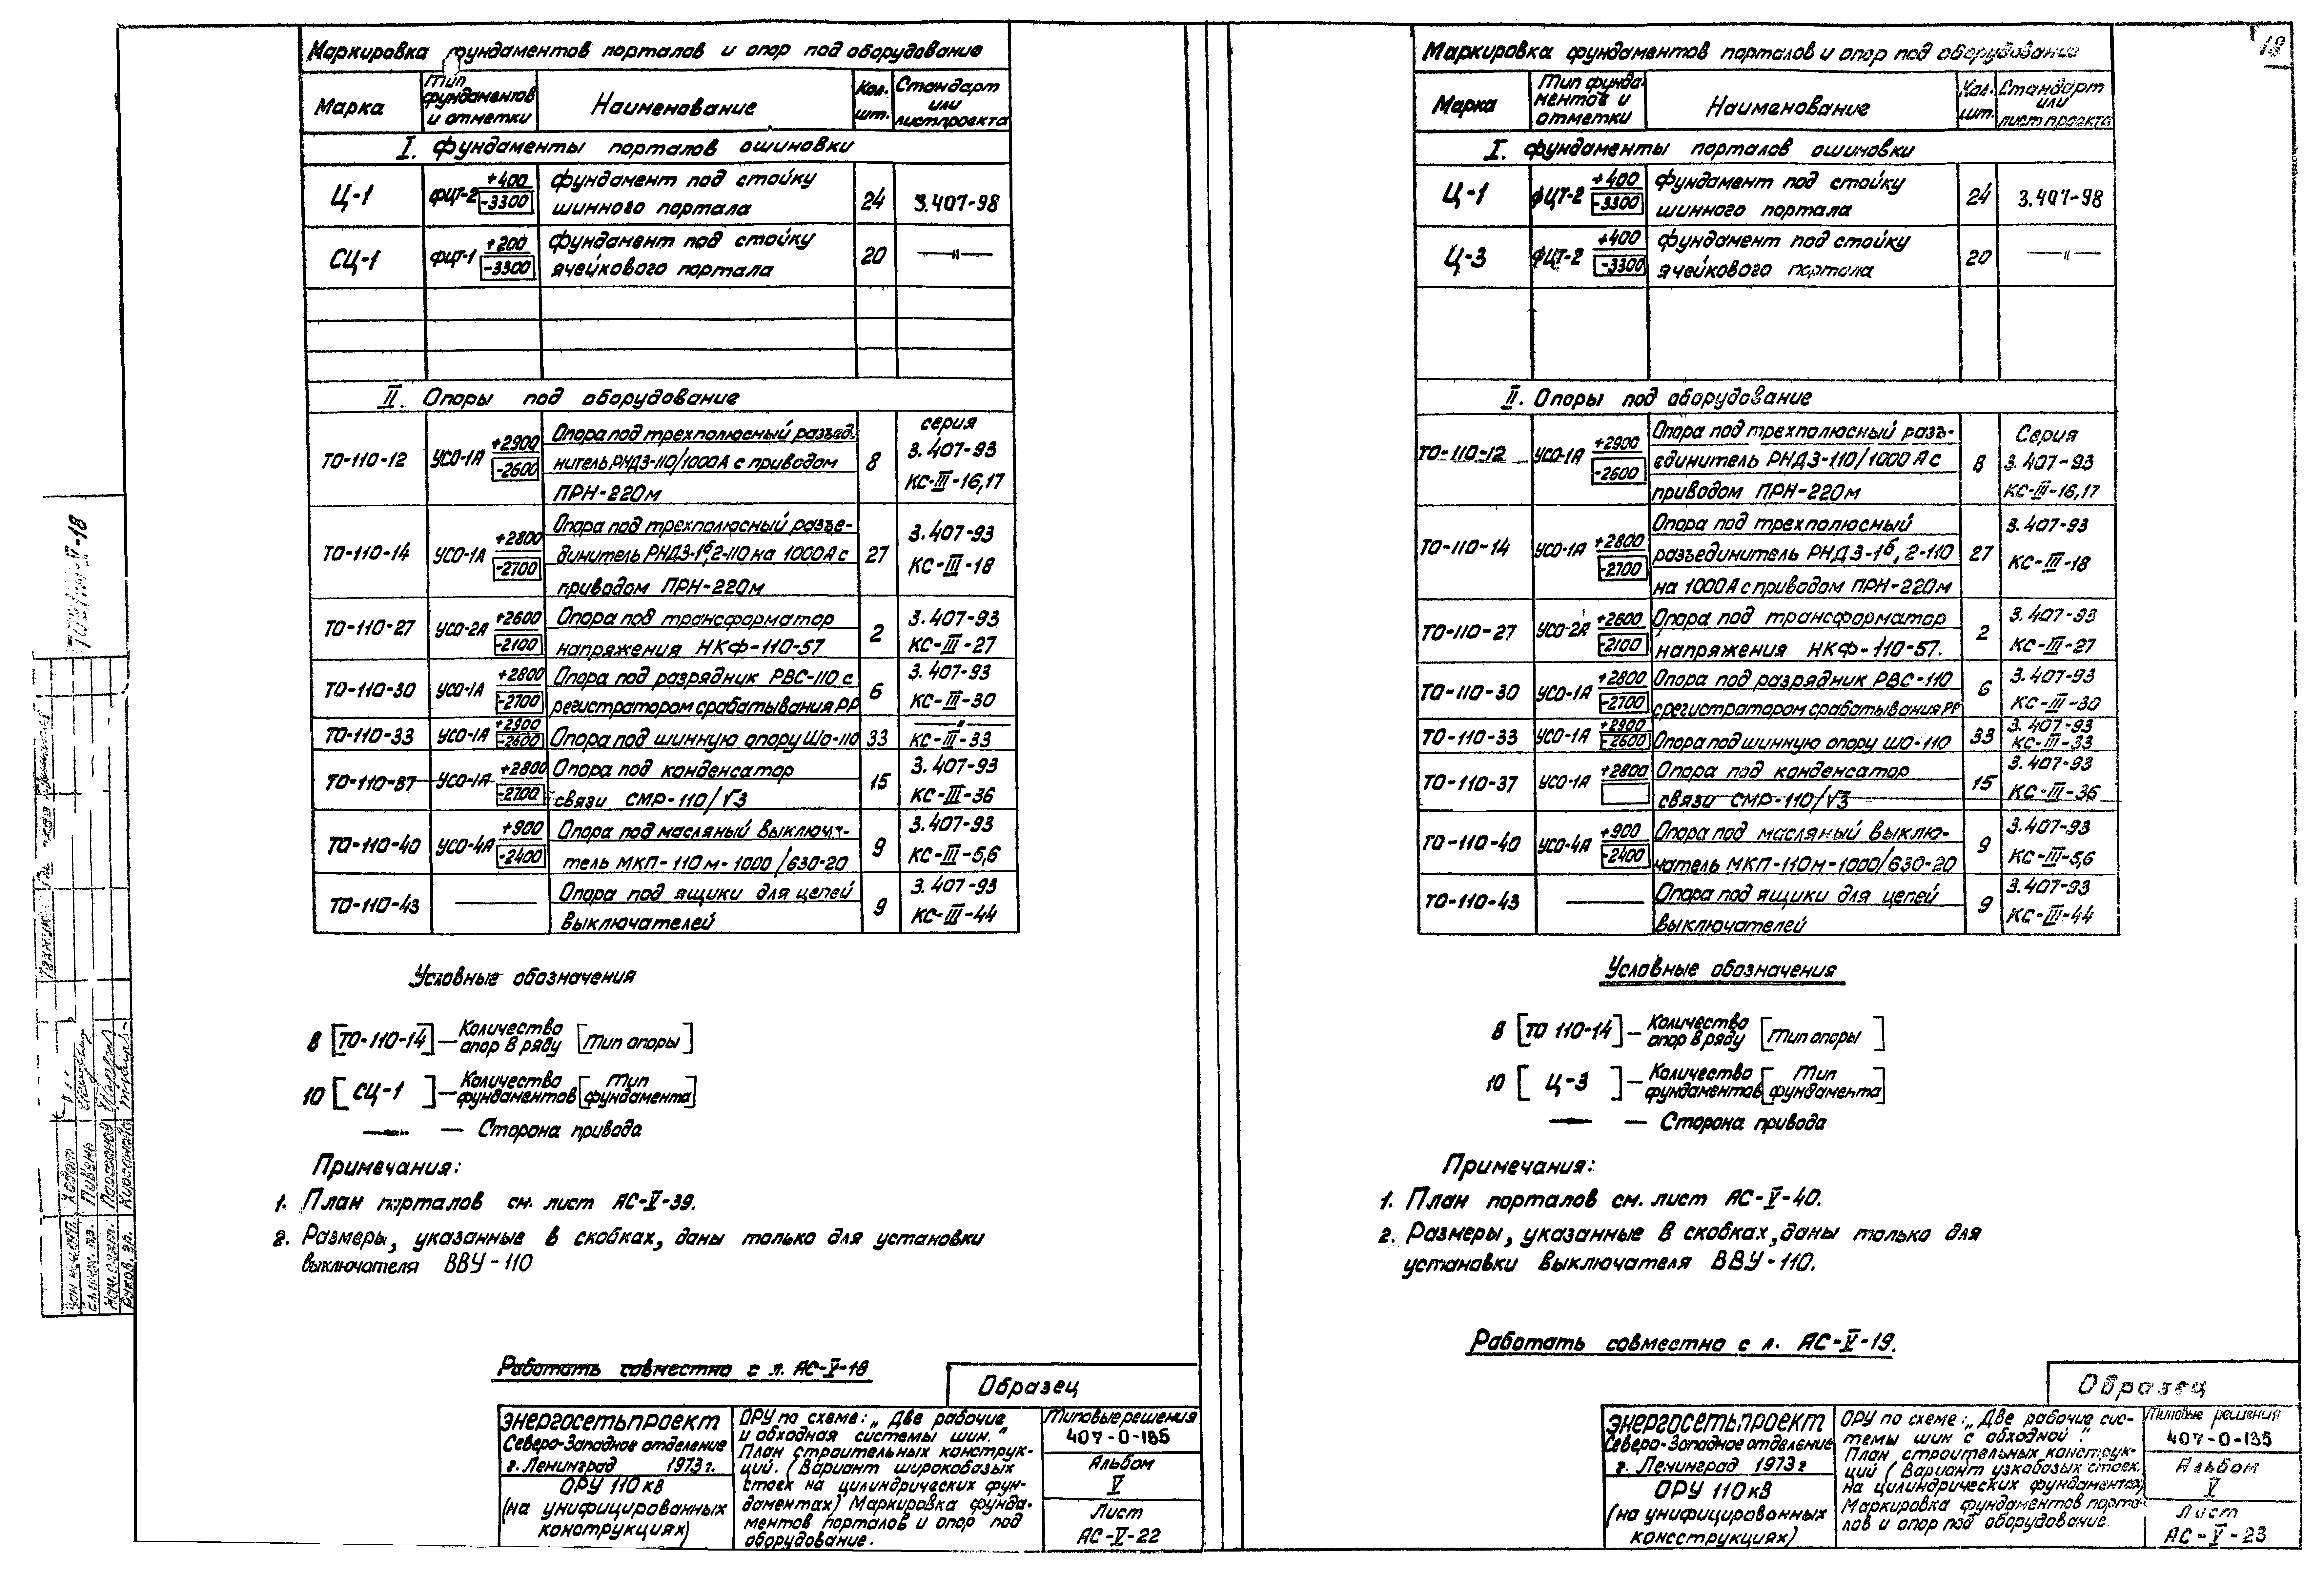 18
Маркировка фундаментов порталов и опор под оборудование
Марка
Тип фундаментов и отметки
Наименование
Кол. шт.
Стандарт или лист проекта
I. Фундаменты порталов ошиновки
Ц-1
ФЦТ-2 +400 -3300
Фундамент под стойку
шинного портала
24
3.407-98
СЦ-1
ФЦТ-1 +200 -3300
Фундамент под стойку
ячейкового портала
20
—"—
II. Опоры под оборудование
ТО-110-12
УСО-1А +2900 -2600
Опора под трехполюсный разъеди
нитель РНДЗ-110/1000А с приводом
ПРН-220м
8
серия
3.407-93
КС-III-16,17
ТО-110-14
УСО-1А +2800 -2700
Опора под трехполюсный разъе-
динитель РНДЗ-1б,2-110 на 1000А с
приводом ПРН-220м
27
3.407-93
КС-III-18
ТО-110-27
УСО-2А +2600 -2100
Опора под трансформатор
напряжения НКФ-110-57
2
3.407-93
КС-III-27
ТО-110-30
УСО-1А +2800 -2700
Опора под разрядник РВС-110 с
регистратором срабатывания РР
6
3.407-93
КС-III-30
ТО-110-33
УСО-1А +2900 -2600
Опора под шинную опору ШО-110
33
—"—
КС-III-33
ТО-110-37
УСО-1А +2800 -2700
Опора под конденсатор
связи СМР-110/√3
15
3.407-93
КС-III-36
ТО-110-40
УСО-4А +900 -2400
Опора под масляный выключа-
тель МКП-110м-1000/630-20
9
3.407-93
КС-III-5,6
ТО-110-43
Опора под ящики для цепей
выключателей
9
3.407-93
КС-III-44
Условные обозначения
8 [ТО-110-14] — Количество опор в ряду [Тип опоры]
10 [СЦ-1] — Количество фундаментов [Тип фундамента]
— Сторона привода
Примечания:
1. План порталов см. лист АС-V-39.
2. Размеры, указанные в скобках, даны только для установки
выключателя ВВУ-110
Работать совместно с л. АС-V-18
Образец
Энергосетьпроект
Северо-Западное отделение
г. Ленинград 1973г.
ОРУ 110кВ
(на унифицированных
конструкциях)
ОРУ по схеме: „Две рабочие
и обходная системы шин."
План строительных конструк-
ций. (Вариант широкобазых
стоек на цилиндрических фун-
даментах) Маркировка фунда-
ментов порталов и опор под
оборудование.
Типовые решения
407-0-135
Альбом
V
Лист
АС-V-22
Маркировка фундаментов порталов и опор под оборудование
Марка
Тип фундаментов и отметки
Наименование
Кол. шт.
Стандарт или лист проекта
I. Фундаменты порталов ошиновки
Ц-1
ФЦТ-2 +400 -3300
Фундамент под стойку
шинного портала
24
3.407-98
Ц-3
ФЦТ-2 +400 -3300
Фундамент под стойку
ячейкового портала
20
—"—
II. Опоры под оборудование
ТО-110-12
УСО-1А +2900 -2600
Опора под трехполюсный разъ-
единитель РНДЗ-110/1000А с
приводом ПРН-220м
8
Серия
3.407-93
КС-III-16,17
ТО-110-14
УСО-1А +2800 -2700
Опора под трехполюсный
разъединитель РНДЗ-1б, 2-110
на 1000А с приводом ПРН-220м
27
3.407-93
КС-III-18
ТО-110-27
УСО-2А +2600 -2100
Опора под трансформатор
напряжения НКФ-110-57.
2
3.407-93
КС-III-27
ТО-110-30
УСО-1А +2800 -2700
Опора под разрядник РВС-110
с регистратором срабатывания РР
6
3.407-93
КС-III-30
ТО-110-33
УСО-1А +2900 -2600
Опора под шинную опору ШО-110
33
3.407-93
КС-III-33
ТО-110-37
УСО-1А +2800
Опора под конденсатор
связи СМР-110/√3
15
3.407-93
КС-III-36
ТО-110-40
УСО-4А +900 -2400
Опора под масляный выклю-
чатель МКП-110м-1000/630-20
9
3.407-93
КС-III-5,6
ТО-110-43
Опора под ящики для цепей
выключателей
9
3.407-93
КС-III-44
Условные обозначения
8 [ТО 110-14] — Количество опор в ряду [Тип опоры]
10 [Ц-3] — Количество фундаментов [Тип фундамента]
— Сторона привода
Примечания:
1. План порталов см. лист АС-V-40.
2. Размеры, указанные в скобках, даны только для
установки выключателя ВВУ-110.
Работать совместно с л. АС-V-19.
Образец
Энергосетьпроект
Северо-Западное отделение
г. Ленинград 1973г
ОРУ 110кВ
(на унифицированных
конструкциях)
ОРУ по схеме: „Две рабочие сис-
темы шин с обходной".
План строительных конструк-
ций (Вариант узкобазых стоек
на цилиндрических фундаментах)
Маркировка фундаментов порта-
лов и опор под оборудование.
Типовые решения
407-0-135
Альбом
V
Лист
АС-V-23